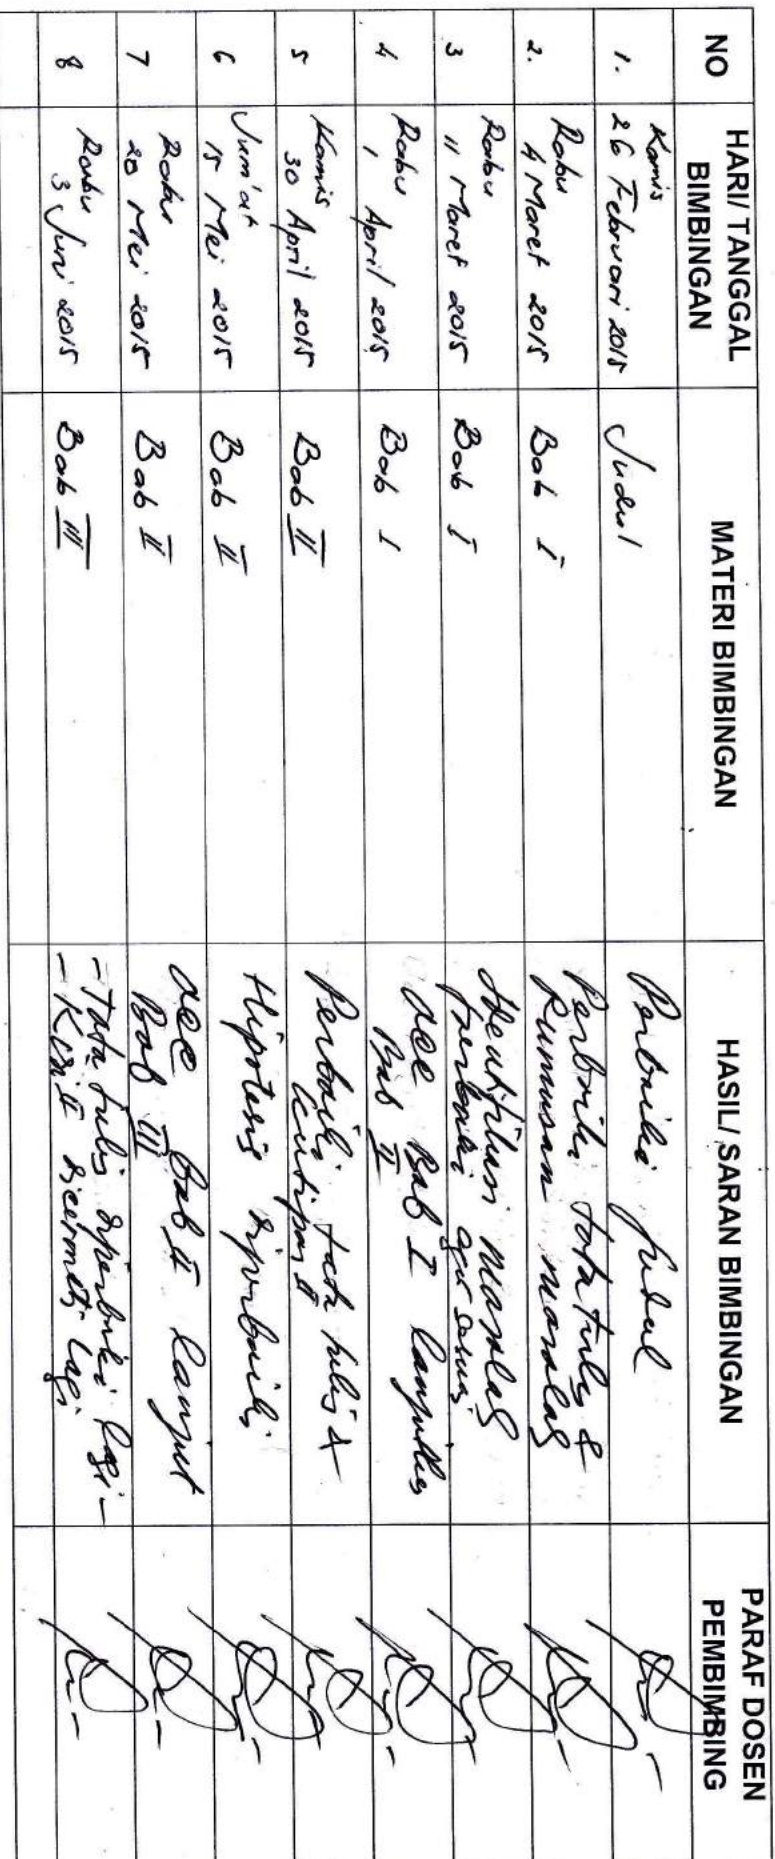 NO
HARI/ TANGGAL
BIMBINGAN
MATERI BIMBINGAN
HASIL/ SARAN BIMBINGAN
PARAF DOSEN
PEMBIMBING
1.
Kamis
26 Februari 2015
Judul
Perbaiki judul
2.
Rabu
4 Maret 2015
Bab I
Perbaiki tata tulis &
Rumusan masalah
3
Rabu
11 Maret 2015
Bab I
Identifikasi masalah
perbaiki agar sesuai
4
Rabu
1 April 2015
Bab I
acc Bab I lanjutkan
Bab II
5
Kamis
30 April 2015
Bab II
Perbaiki tata tulis &
kutipan
6
Jum'at
15 Mei 2015
Bab II
Hipotesis diperbaiki
7
Rabu
20 Mei 2015
Bab II
acc Bab II lanjut
Bab III
8
Rabu
3 Juni 2015
Bab III
- Tata tulis diperbaiki lagi -
- dicermati lagi